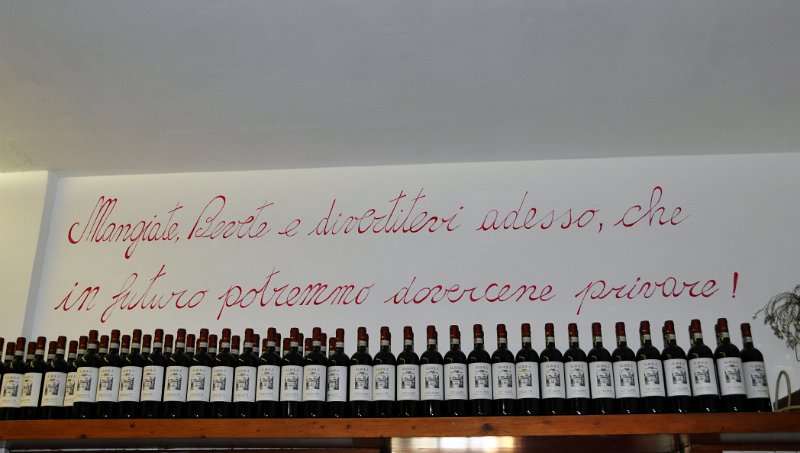 Mangiate, Bevete e divertitevi adesso, che
in futuro potremmo dovercene privare!